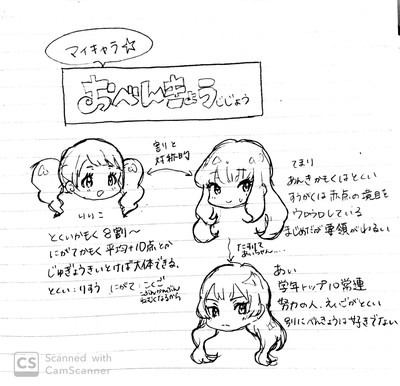 マイキャラ☆
おべんきょうじじょう
割りと
対称的
りりこ
とくいかもく 8割〜
にがてかもく 平均+10点とか
じゅぎょうきいとけば大体できる。
とくい：りすう にがて：こくご
てまり
あんきかもくはとくい
すうがくは赤点の境目を
ウロウロしている
まじめだが要領がわるい
たすけて
あいちゃん…
あい
学年トップ10常連
努力の人、えいごがとくい
別にべんきょうは好きでない
CS Scanned with
CamScanner